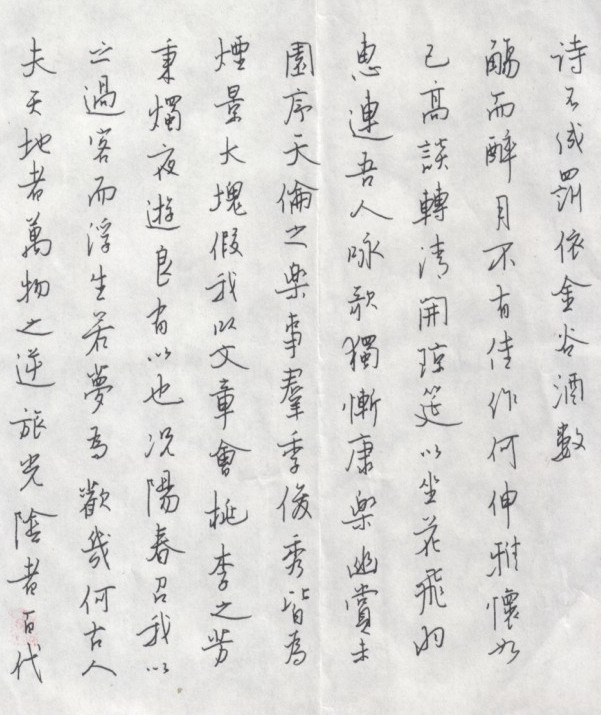 夫天地者萬物之逆旅光陰者百代
之過客而浮生若夢為歡幾何古人
秉燭夜遊良有以也況陽春召我以
煙景大塊假我以文章會桃李之芳
園序天倫之楽事羣季俊秀皆為
惠連吾人咏歌獨慚康楽幽賞未
已高談轉清開琼筵以坐花飛羽
觴而醉月不有佳作何伸雅懷如
诗不成罰依金谷酒數